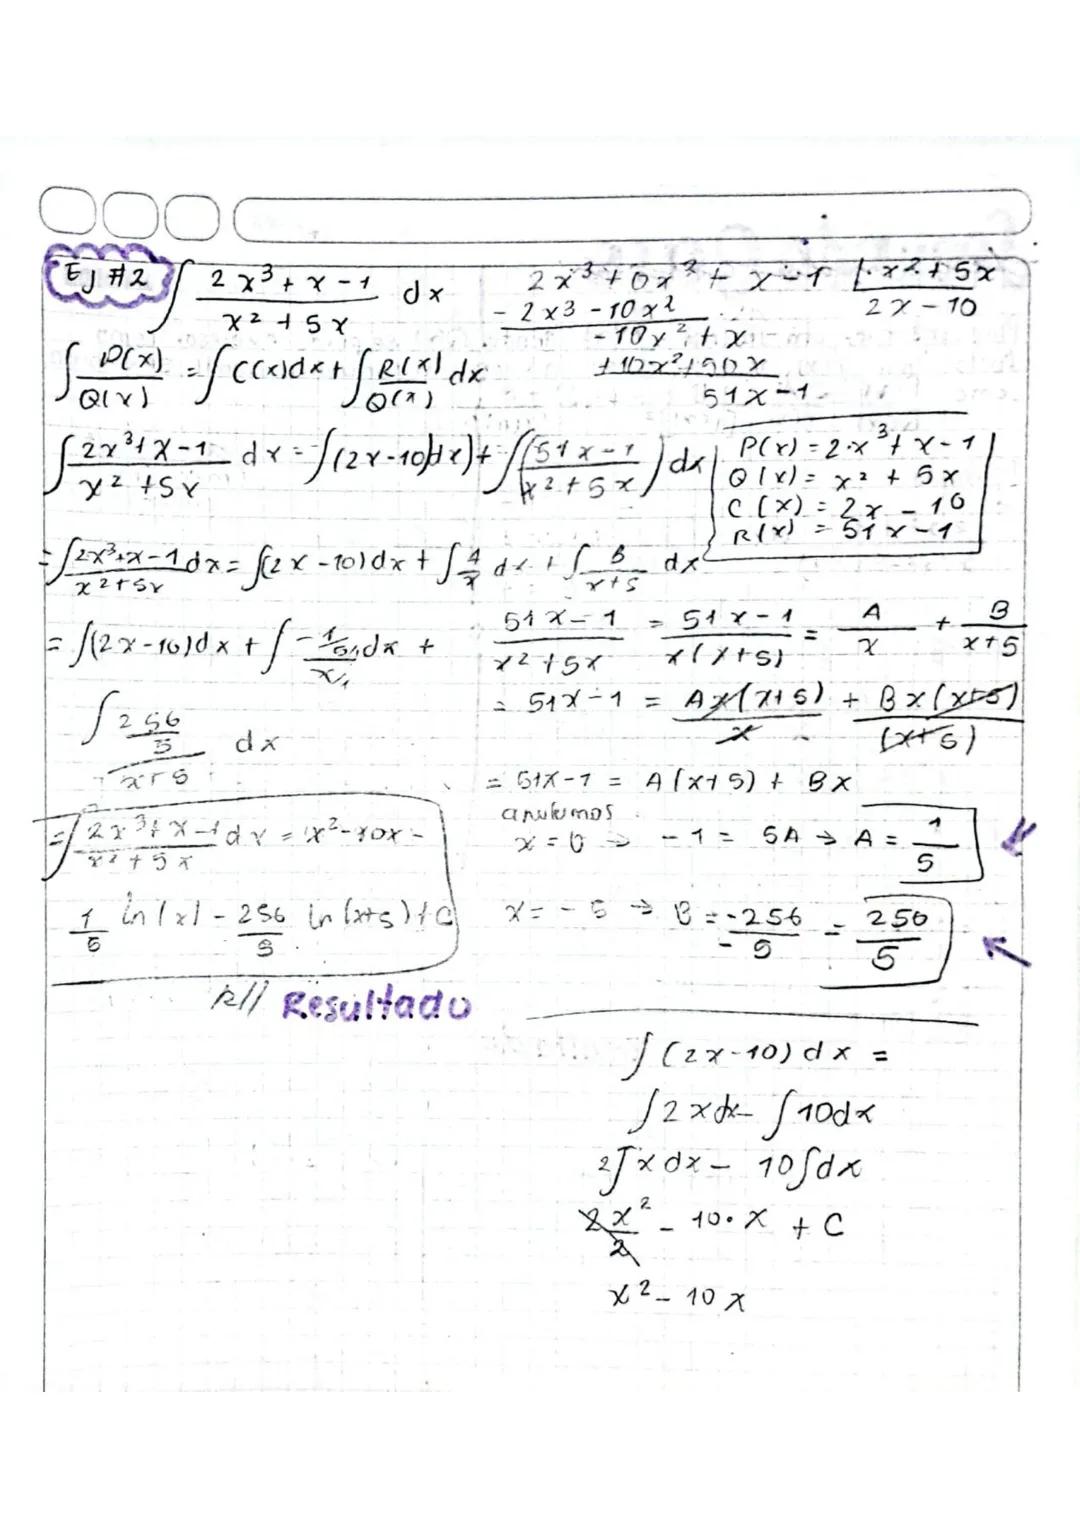 Ej #2 ∫ (2x³ + x - 1)/(x² + 5x) dx
2x³ + 0x² + x - 1 | x² + 5x
- 2x3 - 10x² 2x - 10
- 10x² + x
+ 10x² + 50x
51x - 1
∫ P(x)/Q(x) = ∫ C(x)dx + ∫ R(x)/Q(x) dx
∫ (2x³ + x - 1)/(x² + 5x) dx = ∫(2x - 10)dx) + ∫((51x - 1)/(x² + 5x)) dx
P(x) = 2·x³ + x - 1
Q(x) = x² + 5x
C(x) = 2x - 10
R(x) = 51x - 1
= ∫ (2x³ + x - 1)/(x² + 5x) dx = ∫(2x - 10)dx + ∫ A/x dx + ∫ B/(x + 5) dx
= ∫(2x - 10)dx + ∫ (-1/5)/x dx +
∫ (256/5)/(x + 5) dx
(51x - 1)/(x² + 5x) = (51x - 1)/(x(x + 5)) = A/x + B/(x + 5)
= 51x - 1 = Ax(x + 5)/x + Bx(x + 5)/(x + 5)
= 51x - 1 = A(x + 5) + Bx
anulamos
x = 0 → - 1 = 5A → A = 1/5
x = - 5 → B = -256/-5 = 256/5
= ∫ (2x³ + x - 1)/(x² + 5x) dx = x² - 10x -
1/5 ln|x| - 256/5 ln(x+5) + C
R// Resultado
∫(2x - 10)dx =
∫2xdx - ∫10dx
2∫xdx - 10∫dx
2x²/2 - 10·x + C
x² - 10x